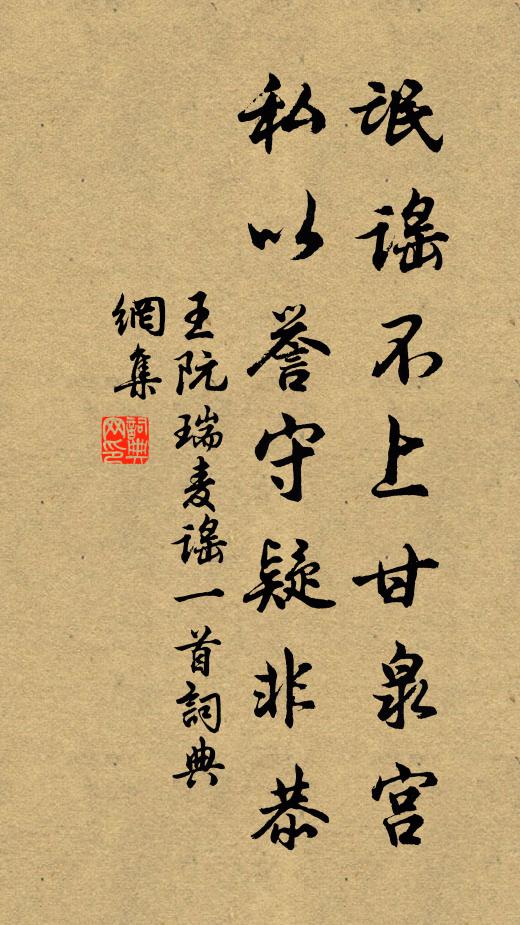 氓謠不上甘泉宮
私以誉守疑非恭
王阮瑞麦謠一首詞典
網集
詞典网印